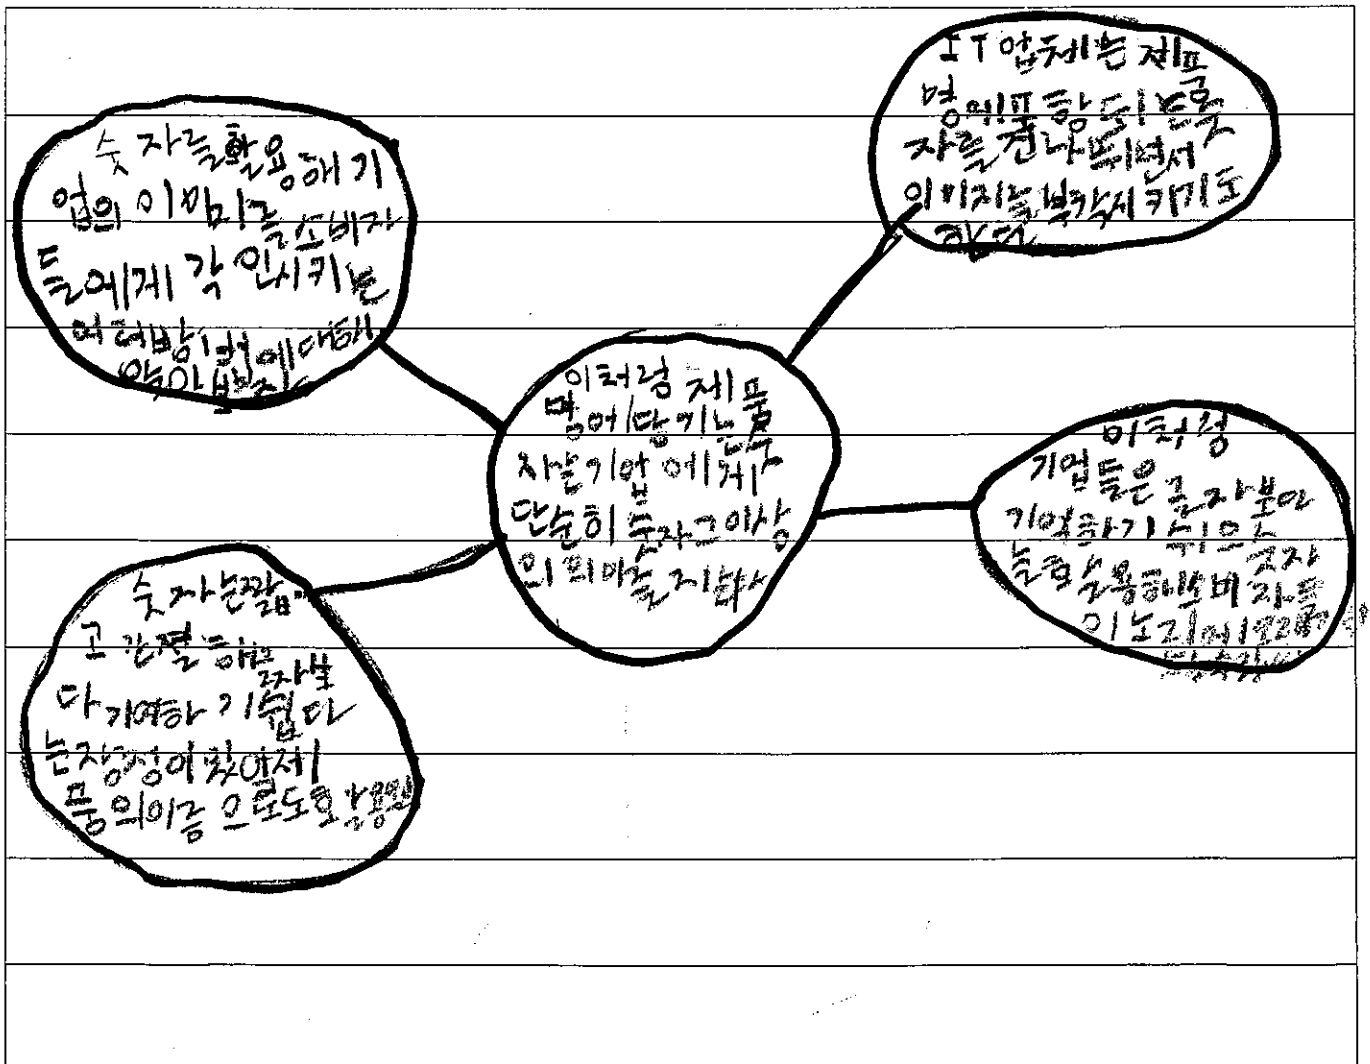 숫자를활용해기
업의 이미지를소비자
들에게 각인시키는
여러방법에대해
알아보자
IT 업체는 제품
명에포함되는숫
자를 건너뛰면서
이미지를부각시키기도
한다
이처럼 제품
명에담기는숫
자는기업에게
단순히 숫자그이상
의 의미를 지닌다
이처럼
기업들은 글자보다
기억하기 쉬운숫자
를활용해소비자들
이
숫자는짧
고 간결해글자보
다 기억하기쉽다
는장점이있어제
품의이름으로도활용된